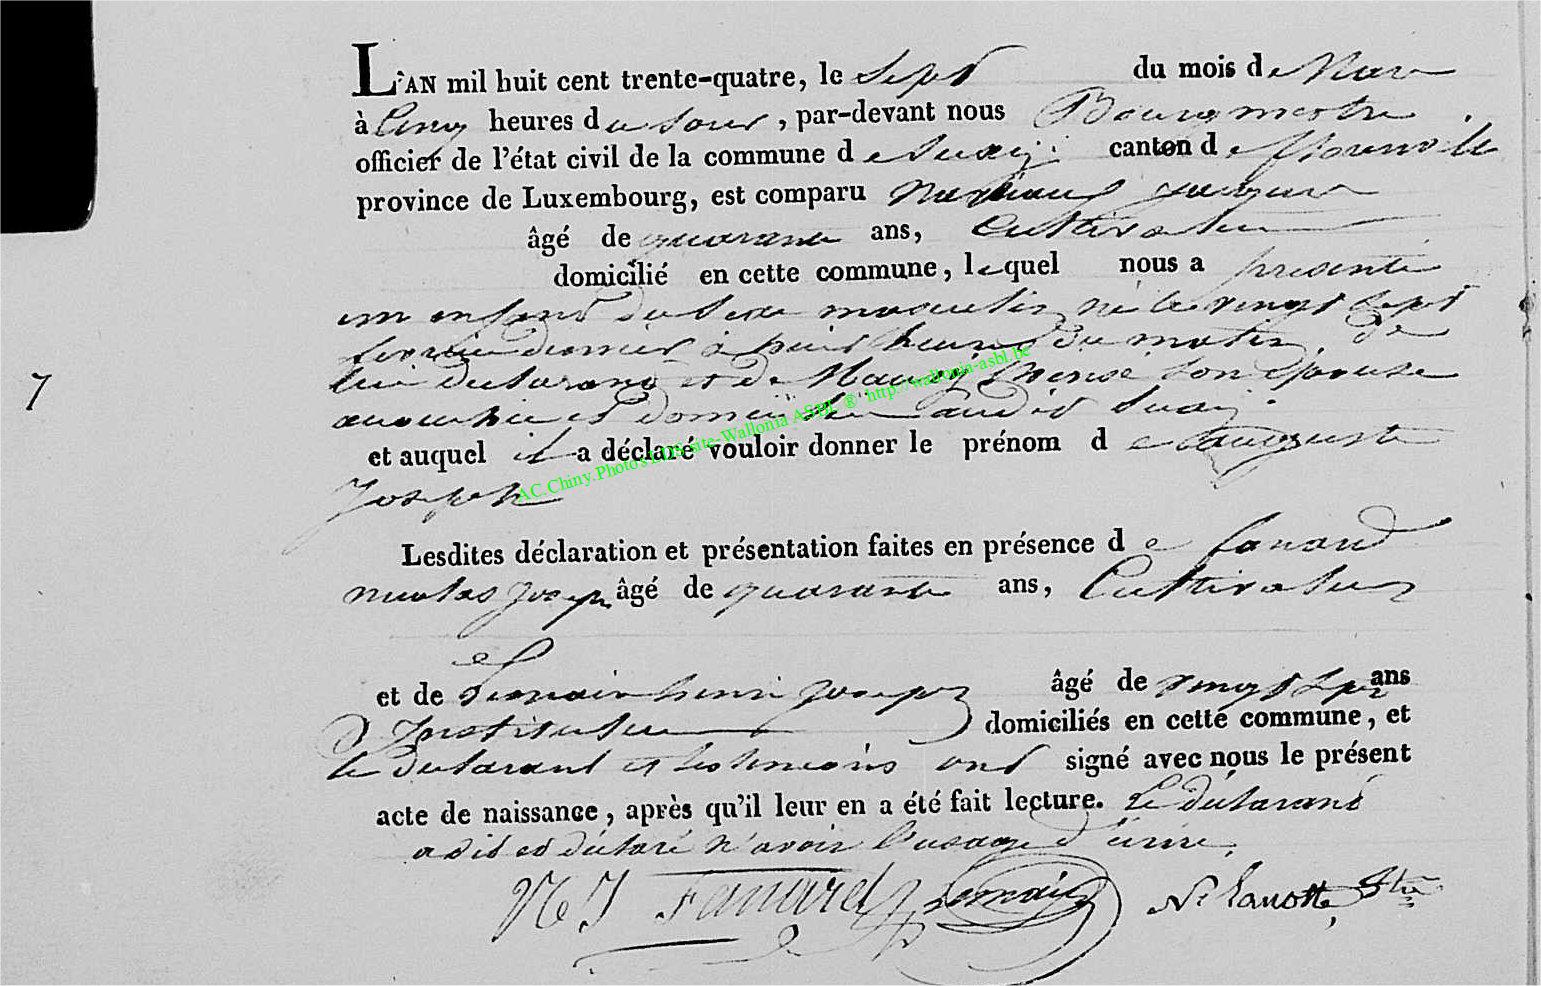 L'AN mil huit cent trente-quatre, le sept du mois de Mars
à Cinq heures du soir, par-devant nous Bourgmestre
officier de l'état civil de la commune de Suxy canton de florenville
province de Luxembourg, est comparu
âgé de quarante ans, Cultivateur
domicilié en cette commune, lequel nous a presenté
un enfant du sexe masculin né le vingt sept
fevrier dernier à huit heures du matin, de
lui declarant et de son épouse
domicilié audit Suxy.
et auquel il a déclaré vouloir donner le prénom de auguste
Joseph
Lesdites déclaration et présentation faites en présence de fanard
nicolas Joseph âgé de quarante ans, Cultivateur
7
et de Lemaire henri Joseph âgé de vingt sept ans
Instituteur domiciliés en cette commune, et
le declarant et les temoins ont signé avec nous le présent
acte de naissance, après qu'il leur en a été fait lecture. Le declarant
a dit et déclaré n'avoir l'usage d'écrire.
NJ Fanard Lemaire N. Lanotte
AC.Chiny.Photo's LDS site-Wallonia ASBL ® http://wallonia-asbl.be